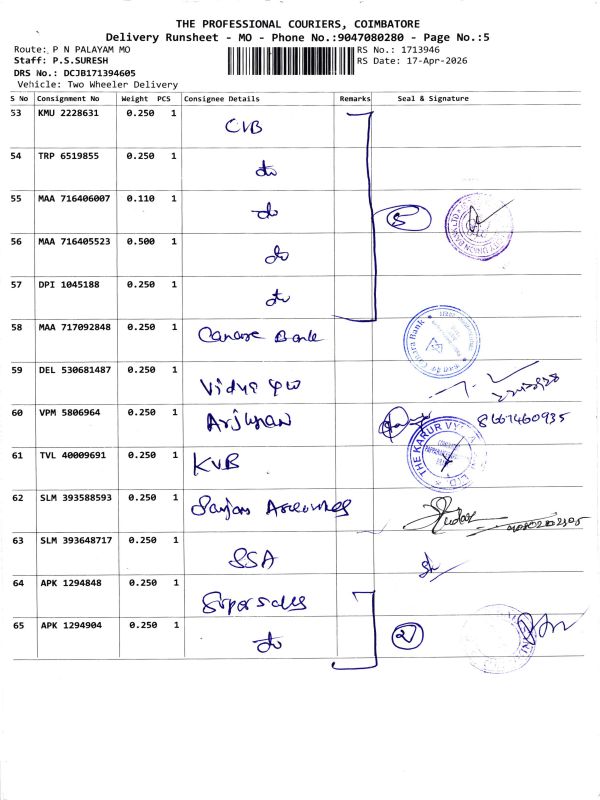 THE PROFESSIONAL COURIERS, COIMBATORE
Delivery Runsheet - MO - Phone No.:9047080280 - Page No.:5
Route: P N PALAYAM MO
RS No.: 1713946
Staff: P.S.SURESH
RS Date: 17-Apr-2026
DRS No.: DCJB171394605
Vehicle: Two Wheeler Delivery
S No Consignment No Weight PCS Consignee Details Remarks Seal & Signature
53 KMU 2228631 0.250 1 CVB
54 TRP 6519855 0.250 1 do
55 MAA 716406007 0.110 1 do 5
56 MAA 716405523 0.500 1 do
57 DPI 1045188 0.250 1 do
58 MAA 717092848 0.250 1 Canara Bank
59 DEL 530681487 0.250 1 Vidya
60 VPM 5806964 0.250 1 Arjunan 8667460935
61 TVL 40009691 0.250 1 KVB THE KARUR VY
62 SLM 393588593 0.250 1
63 SLM 393648717 0.250 1 SSA
64 APK 1294848 0.250 1 Super sales
65 APK 1294904 0.250 1 do 2